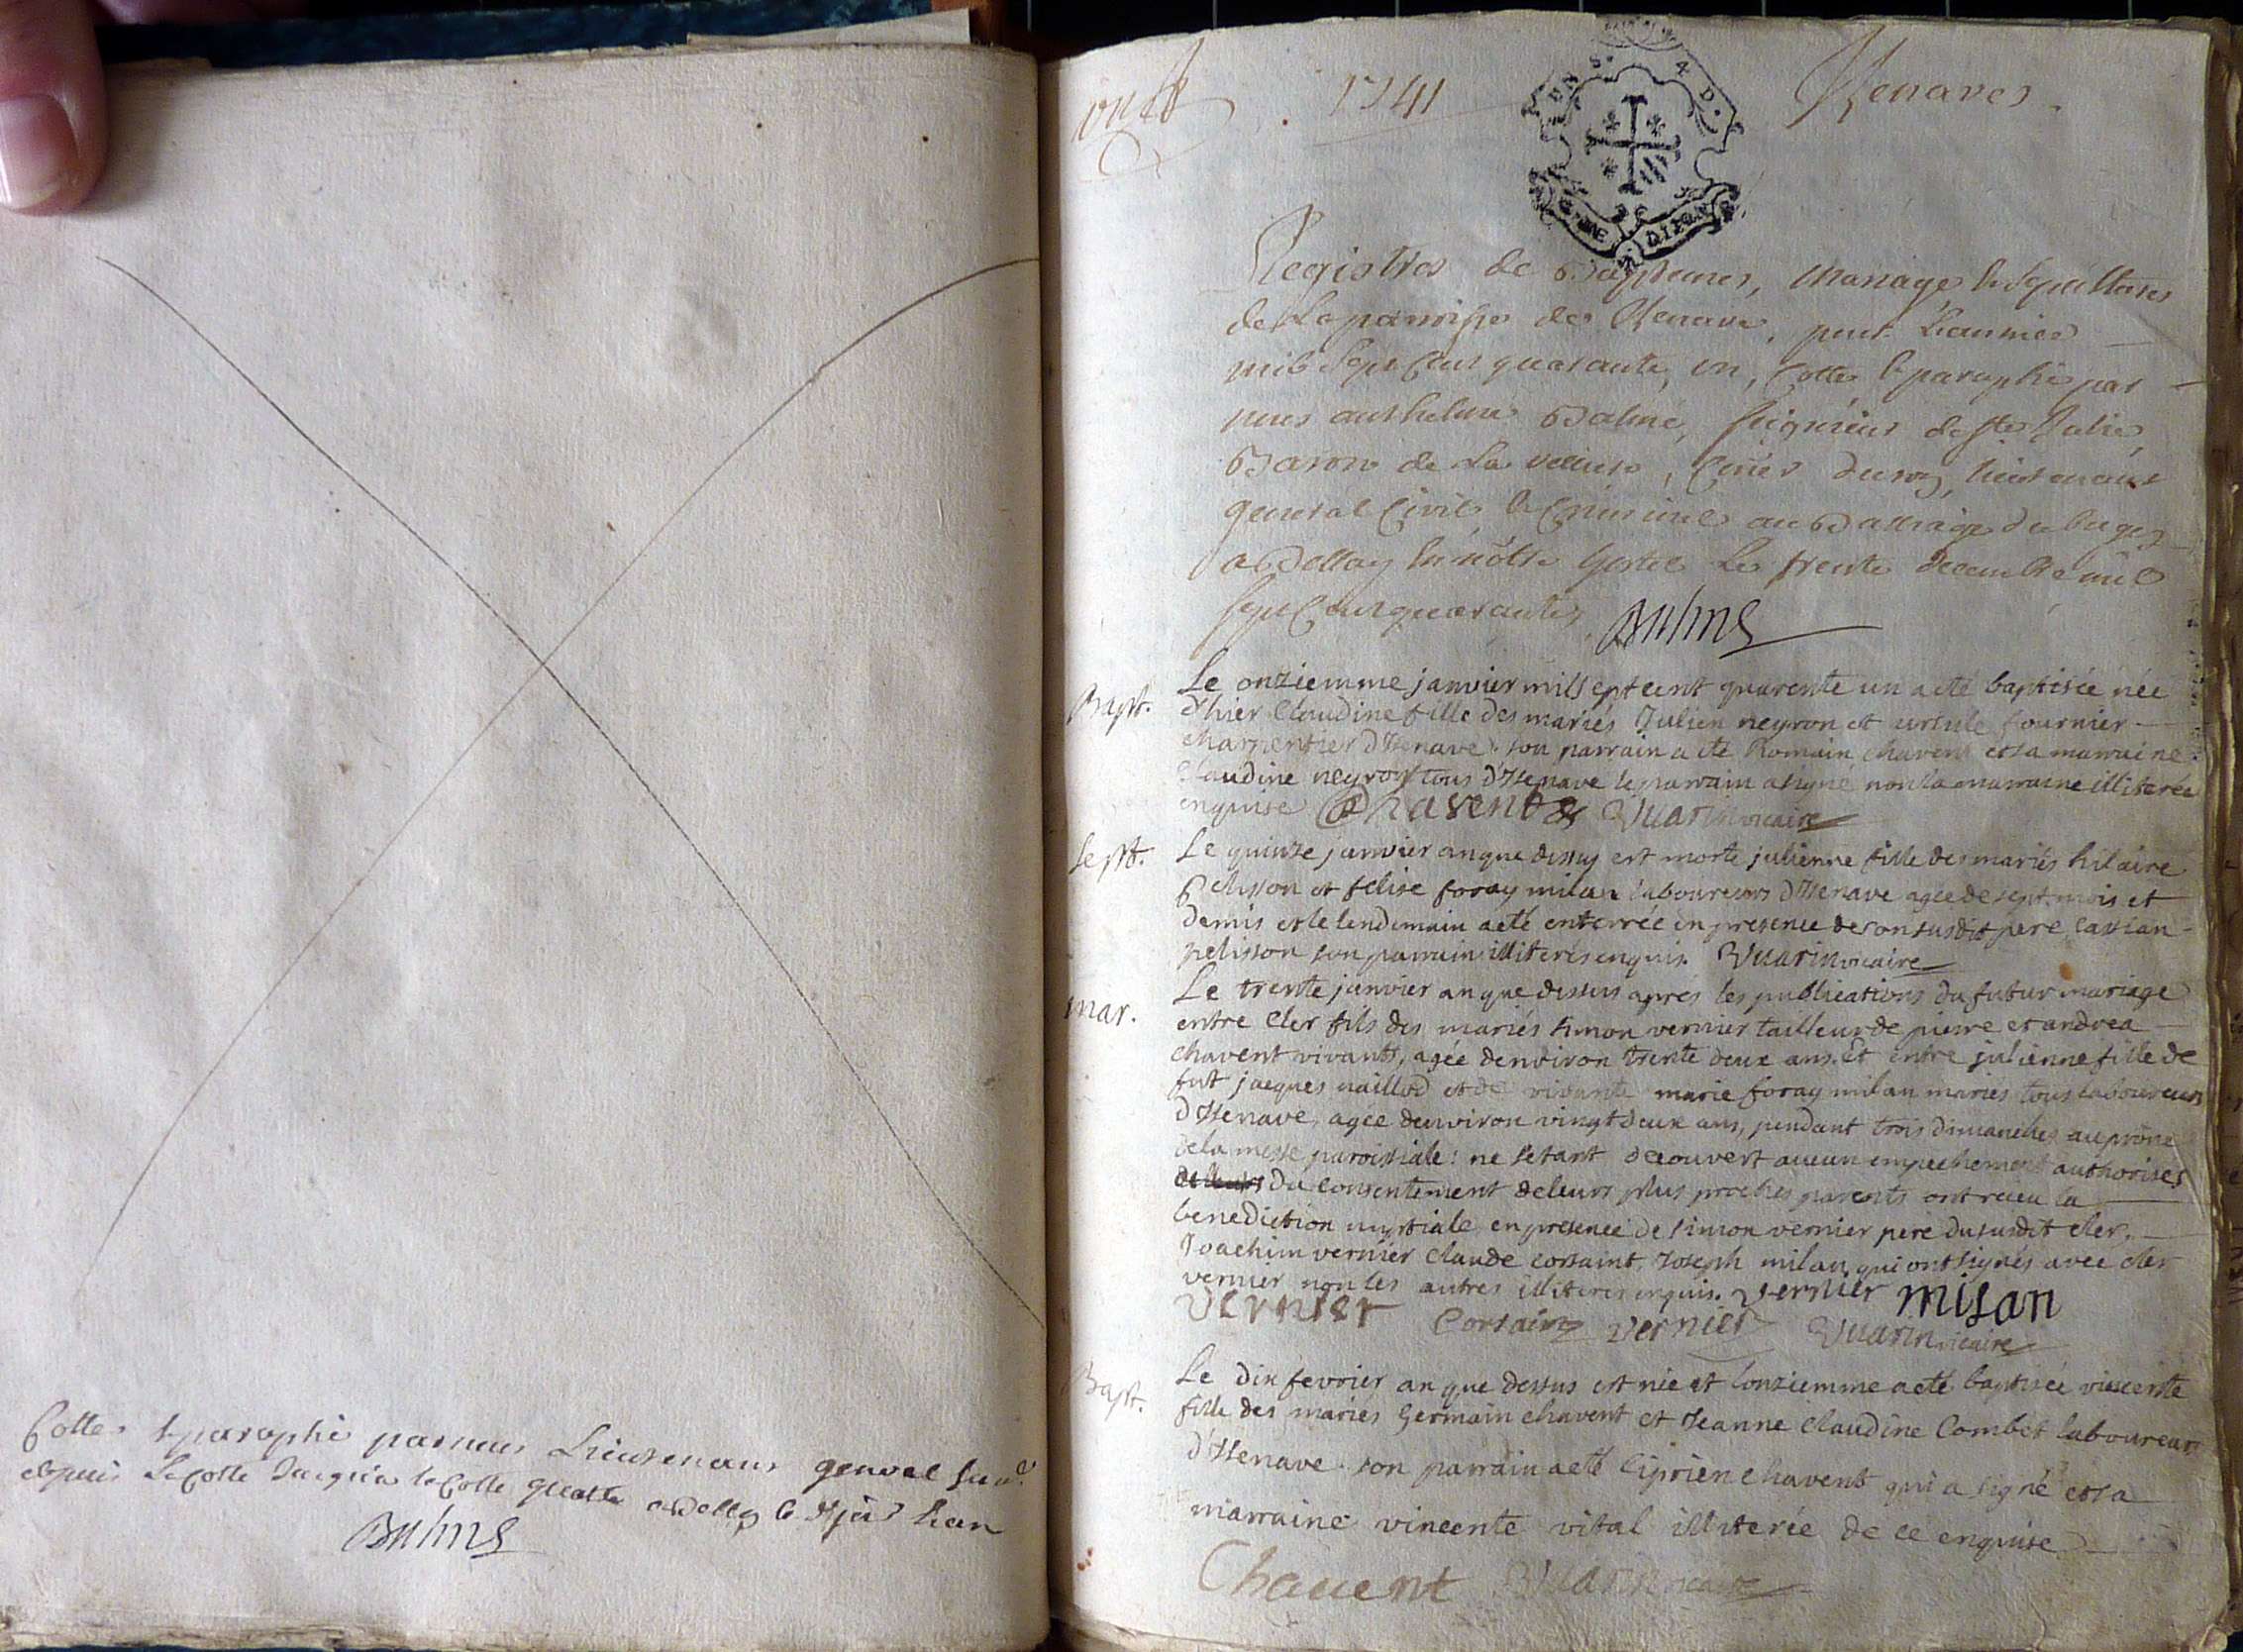 Cottes & paraphé par nous Lieutenant general susd.
depuis la Cotte Jusqu'a la Cotte a Belley led. jour & an
Balme
1741
Izenaves
Registres de Baptemes, Mariages & Sepultures
de la paroisse de Izenave, pour L'année
mil Sept Cent quarante, un, Cottes & paraphé par
nous anthelme Balme, seigneur de ste Julie,
Baron de La velliere, Coner du roy, lieutenant
general Civil & Criminel au Balliage du bugey
a Belley En nôtre hotel Le trente decembre mil
Sept Cent quarante
Balme
Bapt.
Le onziemme janvier mil sept cent quarente un a eté baptisée née
d'hier Claudine fille des mariés Julien neyron et ursule fournier
charpentier d'Isenave. son parrain a eté Romain chavent et sa marraine
Claudine neyron tous d'Isenave le parrain a signé non la marraine illiterée
enquise Chavent Vuarin vicaire
sept.
Le quinze janvier an que dessus est morte julienne fille des mariés hilaire
pelisson et felise foray milan laboureurs d'Isenave agée de sept mois et
demis et le lendemain a eté enterrée en presence de son susdit pere cassian
pelisson son parrain illiterés enquis. Vuarin vicaire
mar.
Le trente janvier an que dessus aprés les publications du futur mariage
entre Cler fils des mariés simon vernier tailleur de pierre et andrea
chavent vivants, agée denviron trente deux ans. Et entre julienne fille de
fut jacques naillod et de vivante marie foray milan mariés tous laboureurs
d'Isenave, agée denviron vingt deux ans, pendant trois dimanches au prône
de la messe paroissiale: ne setant decouvert aucun empechement authorises
du consentement de leurs plus proches parents ont receu la
benediction nuptiale en presence de simon vernier pere du susdit cler,
Joachim vernier Claude corsaint, Joseph milan, qui ont signés avec cler
vernier non les autres illiteres enquis. vernier milan
vernier Corsain vernier Vuarin vicaire
Bapt.
Le dix fevrier an que dessus est née et lonziemme a eté baptisée vincente
fille des mariés Germain chavent et Jeanne Claudine Combet laboureurs
d'Isenave. son parrain a eté Ciprien chavent qui a signé et sa
marraine vincente vital illiterée de ce enquise
Chavent Vuarin vicaire